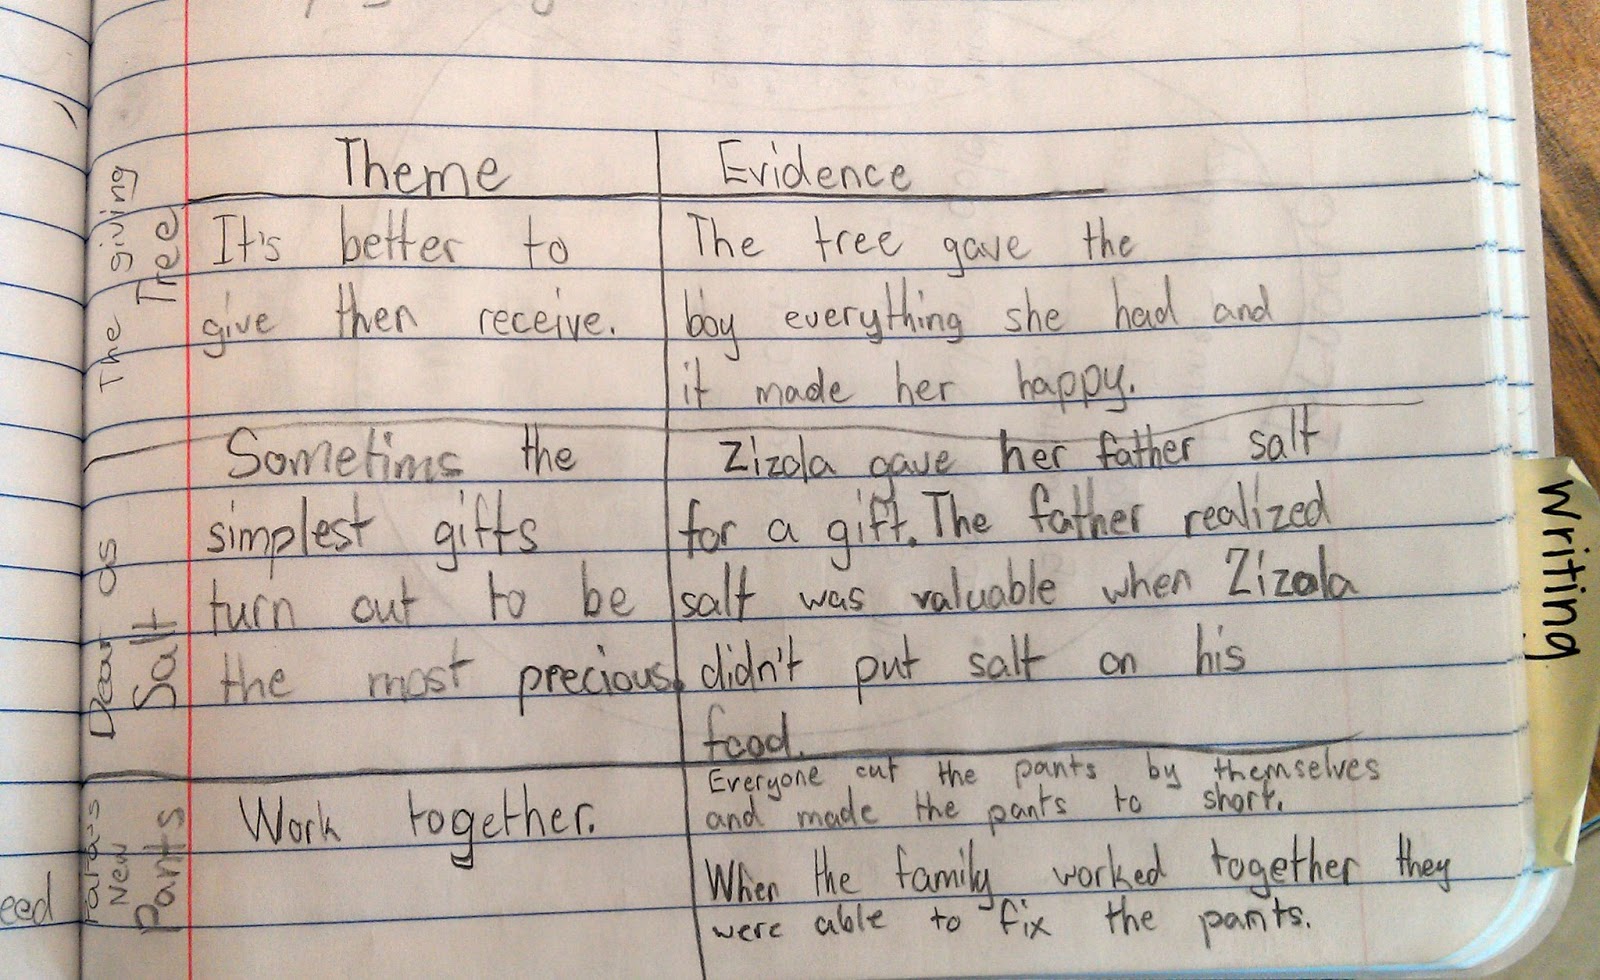 Theme Evidence
The giving
Tree
It's better to
give then receive.
The tree gave the
boy everything she had and
it made her happy.
Dear as
Salt
Sometims the
simplest gifts
turn out to be
the most precious.
Zizola gave her father salt
for a gift. The father realized
salt was valuable when Zizola
didn't put salt on his
food.
New
Pants
Work together.
Everyone cut the pants by themselves
and made the pants to short.
When the family worked together they
were able to fix the pants.
Writing
eed